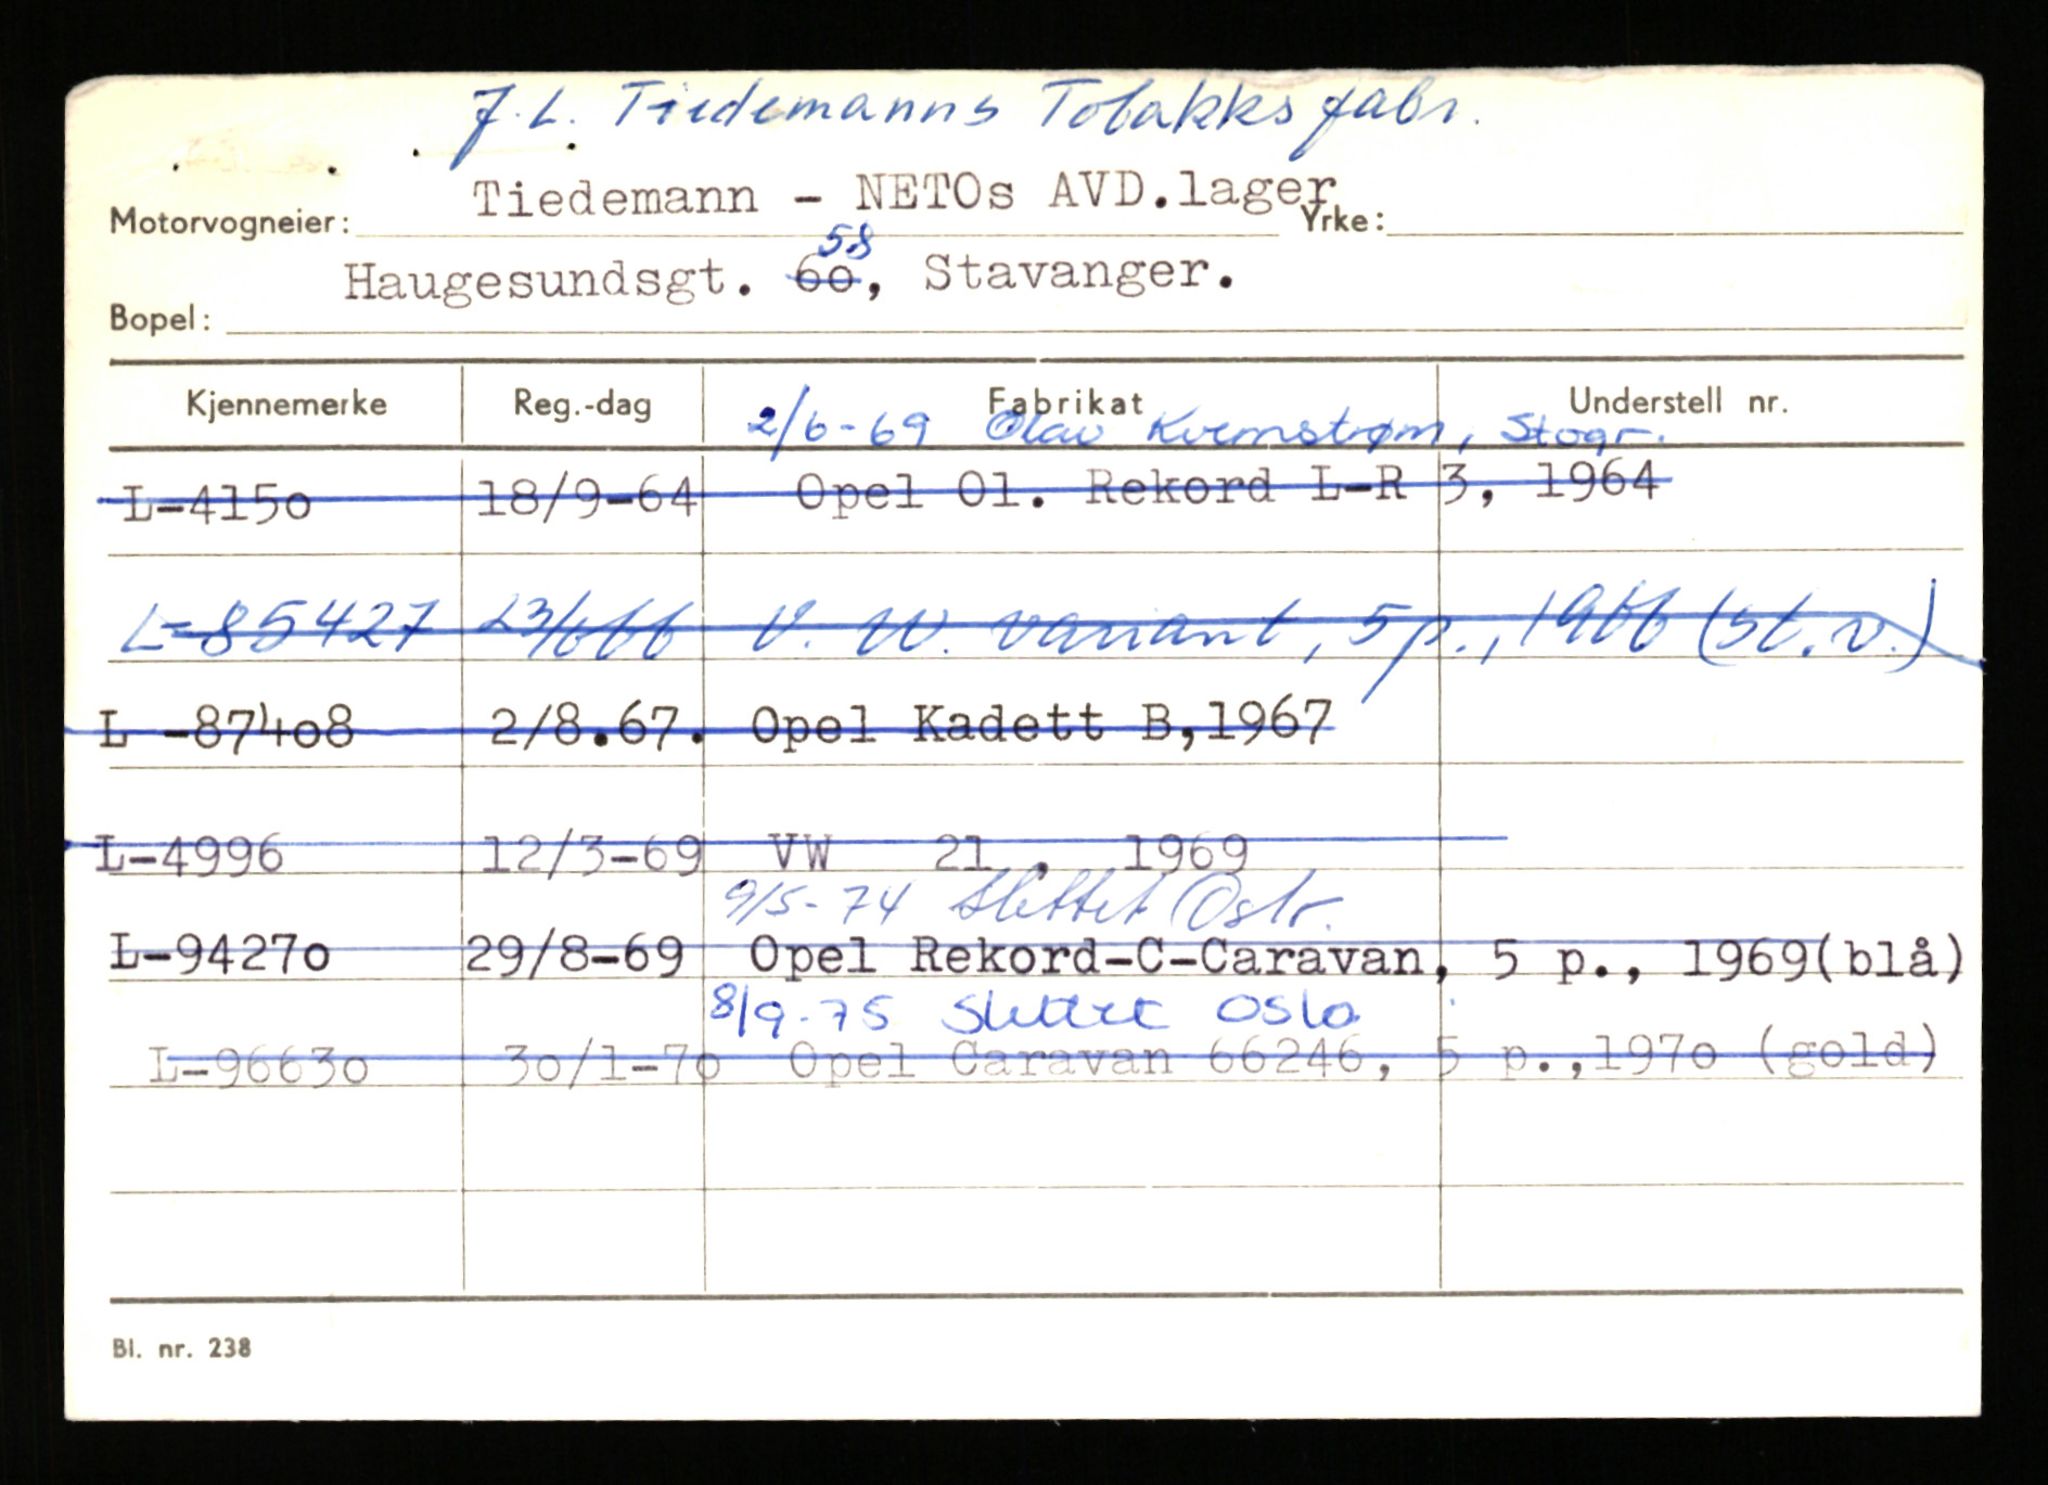 J. L. Tiedemanns Tobakksfabr.
Tiedemann - NETOs AVD.lager
Motorvogneier: Yrke:
58
Haugesundsgt. 60, Stavanger.
Bopel:
Kjennemerke Reg.-dag Fabrikat Understell nr.
2/6-69 Olav Kvernstrøm, Stvgr.
L-4150 18/9-64 Opel Ol. Rekord L-R 3, 1964
L-85427 23/6 66 V. W. variant, 5 p., 1966 (st.v.)
L -87408 2/8.67. Opel Kadett B,1967
L-4996 12/3-69 VW 21 , 1969
9/5-74 Slettet Oslo.
L-94270 29/8-69 Opel Rekord-C-Caravan, 5 p., 1969(blå)
8/9-75 Slettet Oslo
L-96630 30/1-70 Opel Caravan 66246, 5 p.,1970 (gold)
Bl. nr. 238